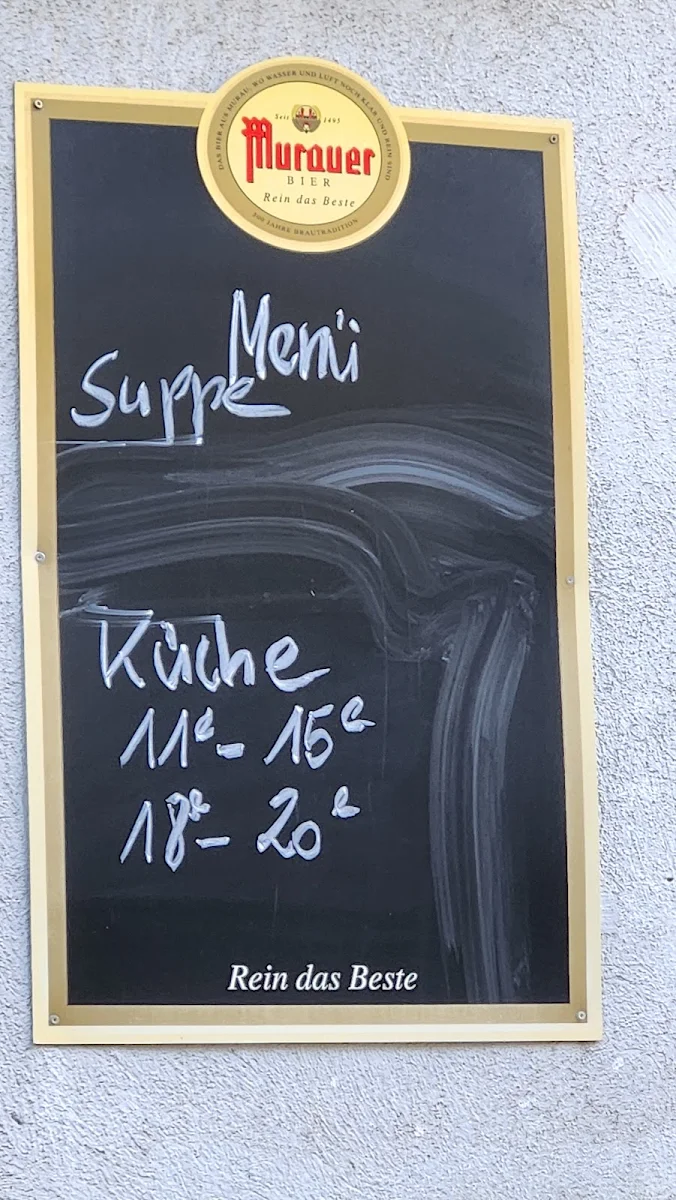 DAS BIER AUS MURAU, WO WASSER UND LUFT NOCH KLAR UND REIN SIND
Seit 1495
Murauer
BIER
Rein das Beste
500 JAHRE BRAUTRADITION
Menü
Suppe
Küche
11e - 15e
18e - 20e
Rein das Beste